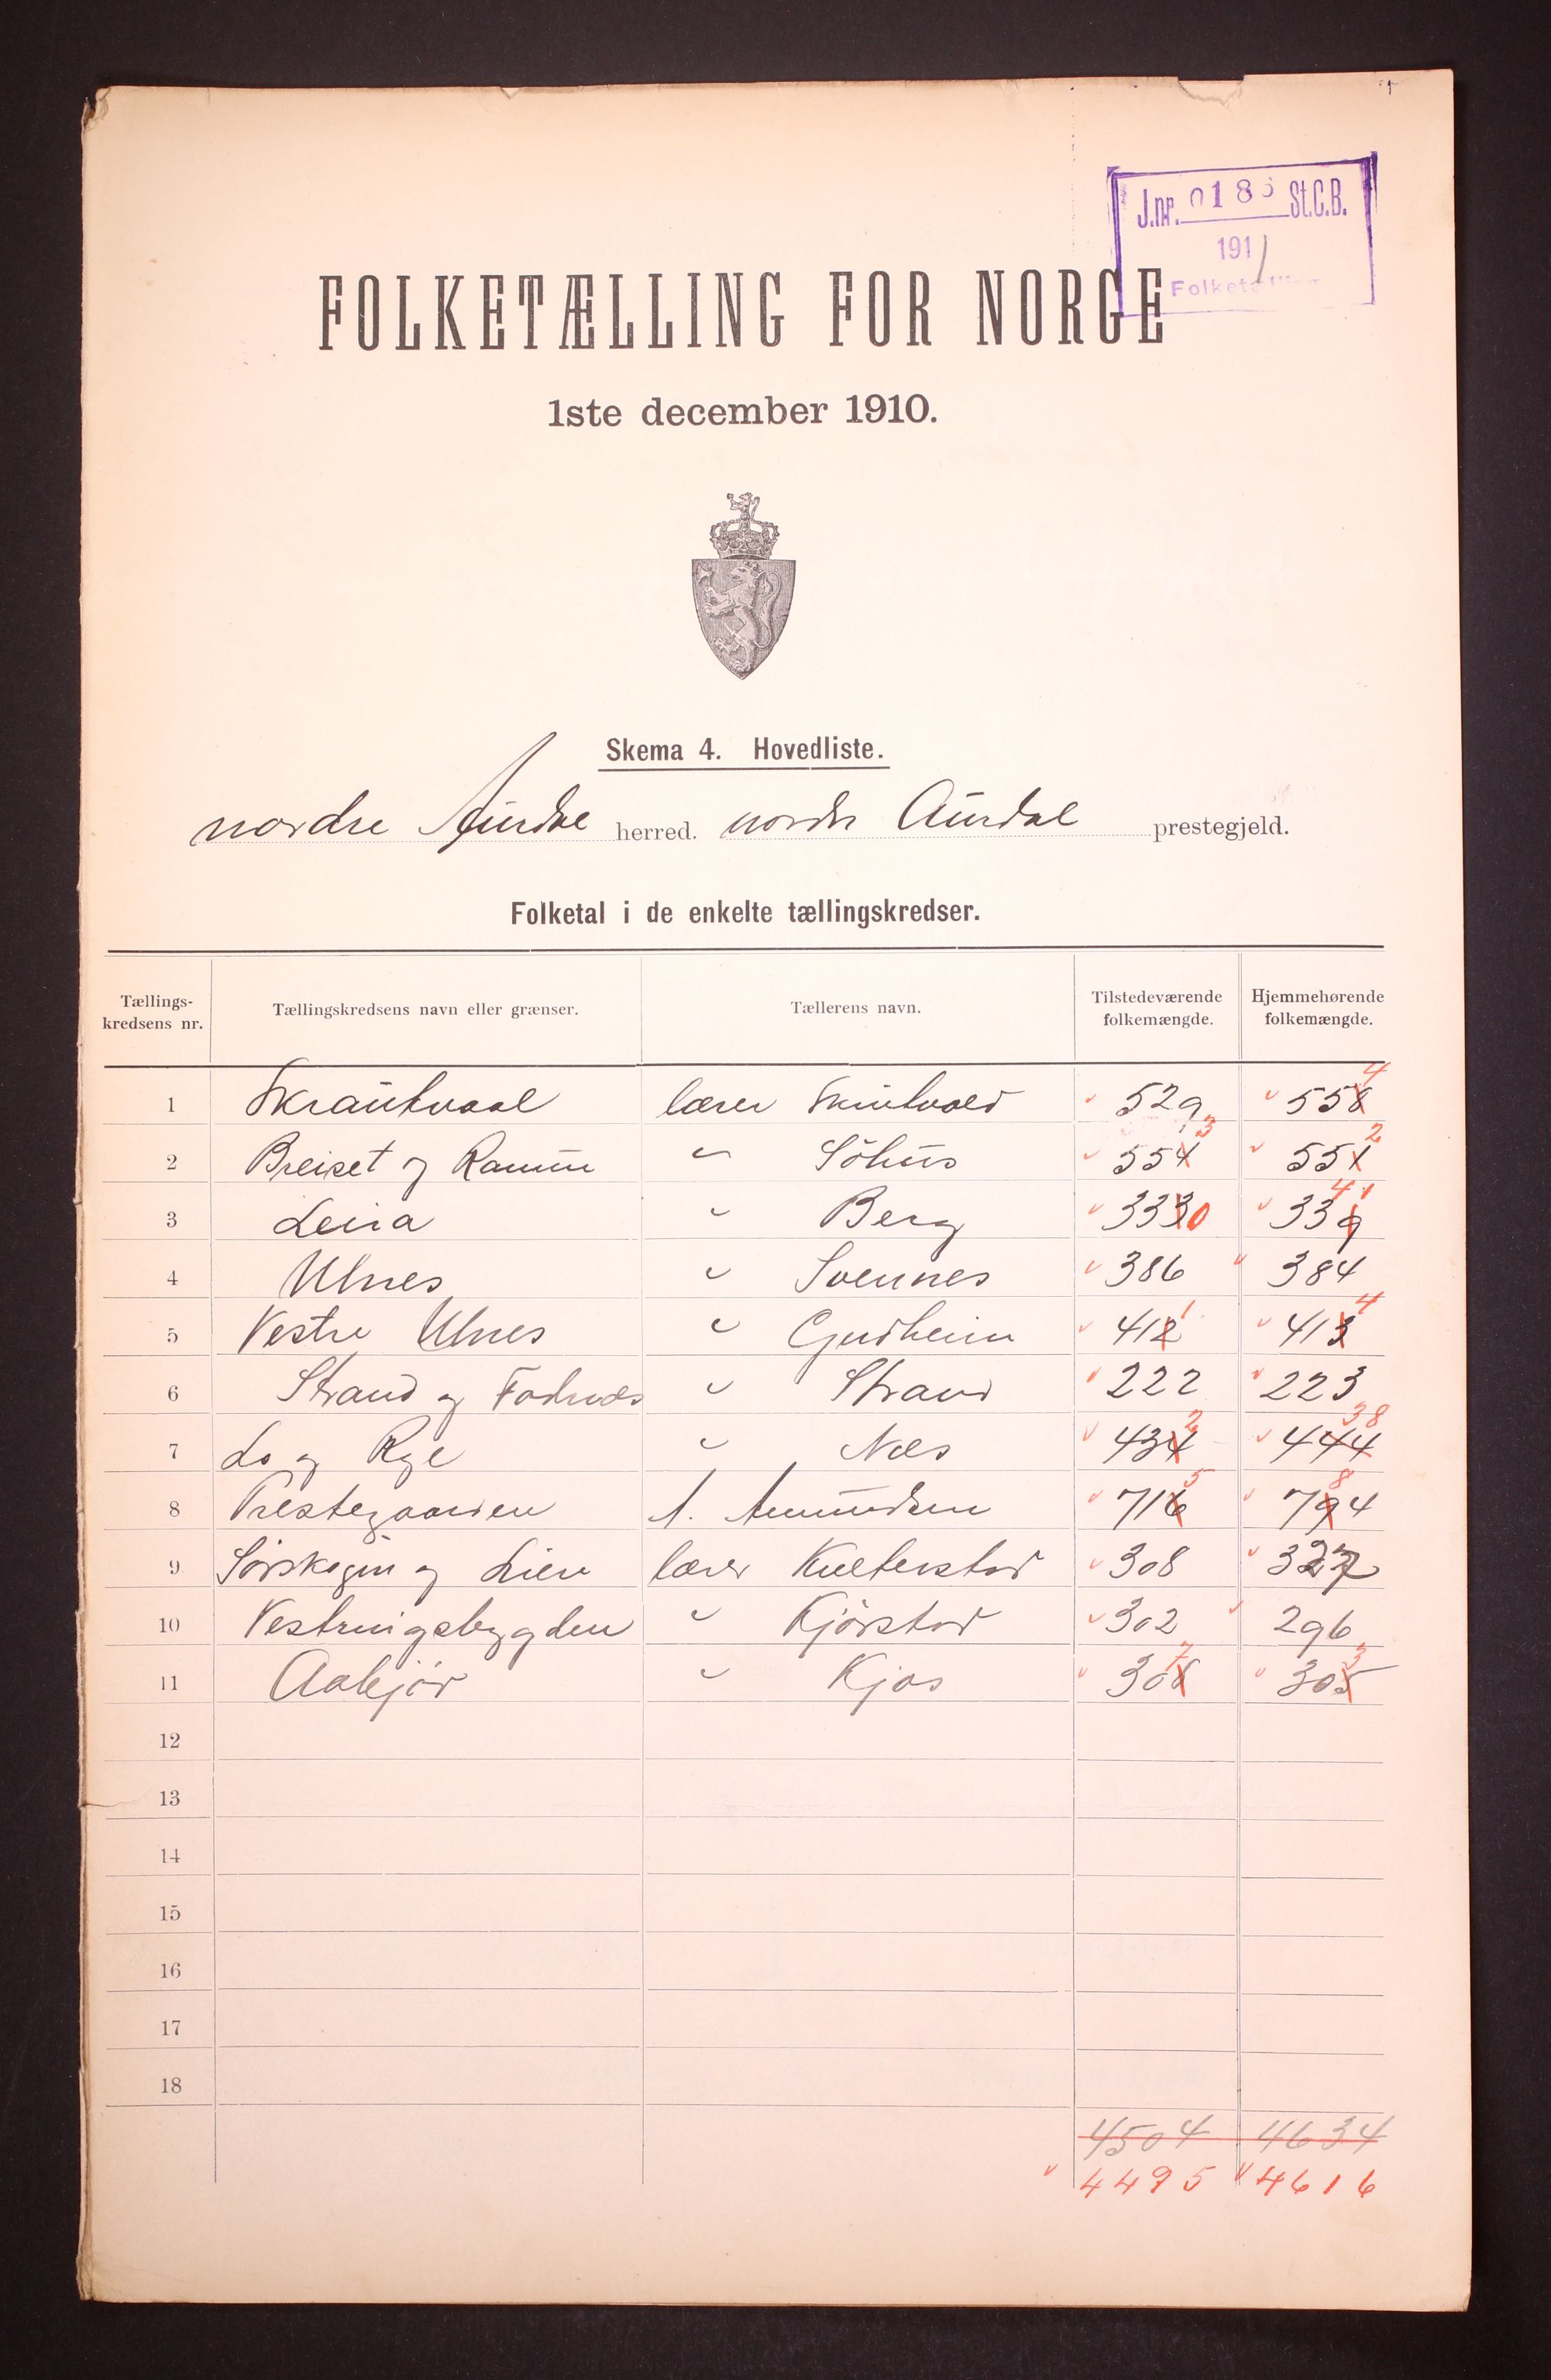 J.nr. 018 St.C.B.
1911
FOLKETÆLLING FOR NORGE
1ste december 1910.
Skema 4. Hovedliste.
nordre Aurdal herred. nordre Aurdal prestegjeld.
Folketal i de enkelte tællingskredser.
Tællings-kredsens nr. Tællingskredsens navn eller grænser. Tællerens navn. Tilstedeværende folkemængde. Hjemmehørende folkemængde.
1 Skrautvaal lærer Skrutvold 529 558 4
2 Breiset og Ranum " Söhus 554 3 551 2
3 Leira " Berg 333 0 339 41
4 Ulnes " Svennes 386 384
5 Vestre Ulnes " Gjerdheim 412 1 413 4
6 Strand og Fodnæs " Strand 222 223
7 Lo og Rye " Næs 434 2 444 38
8 Prestegaarden A. Amundsen 716 5 794 8
9 Sörskogen og Lien lærer 308 327
10 Vestringsbygden " Kjörstad 302 296
11 Aabjör " Kjos 308 7 305 3
12
13
14
15
16
17
18
4504 4634
4495 4616